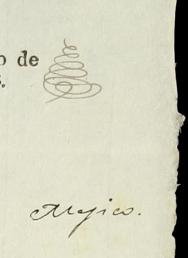 o de
s.
Mejico.